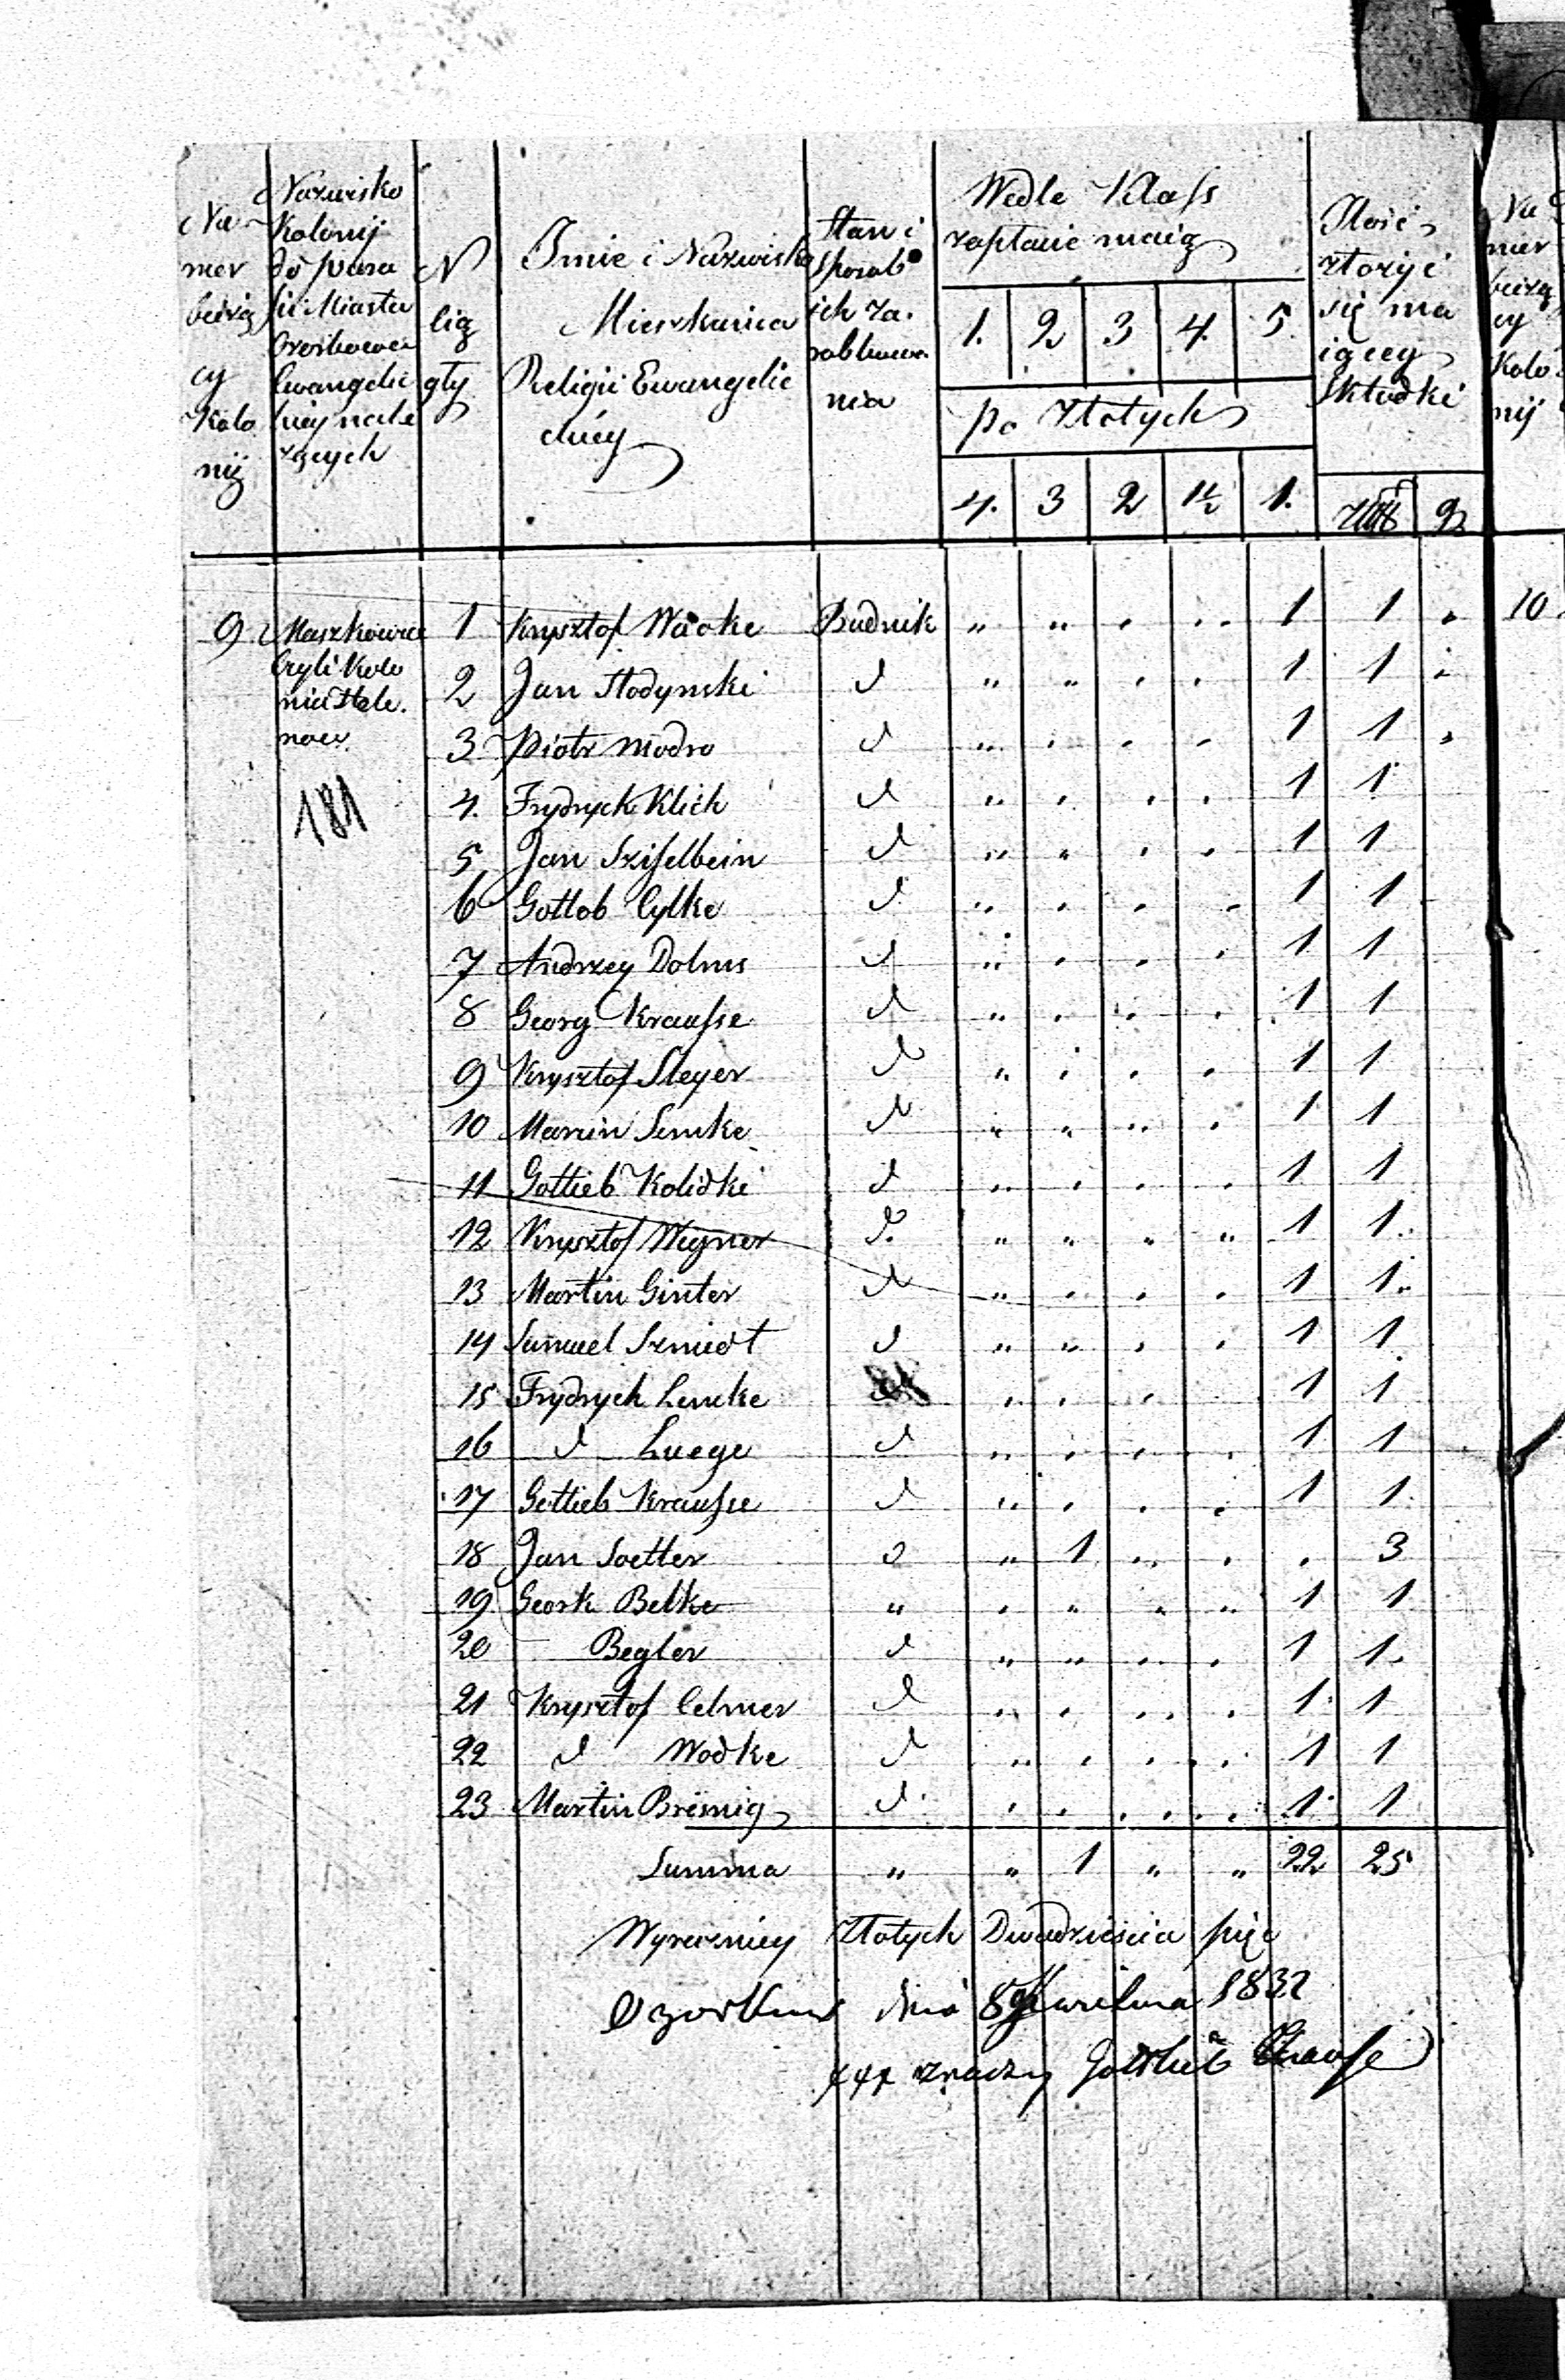 Nu-
mer
bieżą
cy
Kolo
nij
Nazwisko
Kolonij
do para
fii Miasta
Ozorkowa
Ewangelic
kiey nale
rzących
N
lig
gły
Imie i Nazwisko
Mieszkańca
Religii Ewangelic
kiéy
Stan i
sposob
ich za-
robkowa
nia
Wedle Klass
zapłacić maią
1. 2 3 4. 5.
po Złotych
4. 3 2 1½ 1.
Ilość
złożyć
się ma
iącey
Składki
gr
Nu
mer
bieżą
cy
Kolo
nij
9 Maszkowice 1 Krysztof Wacke Budnik „ „ . . . 1 1 . 10.
czyli Kolo
nia Hole.
now.
181
2 Jan Stodynski d „ „ . . 1 1 .
3 Piotr Modro d „ . . . 1 1 .
4. Frydrych Klich d „ . . . 1 1
5 Jan Sziselbein d „ „ . . 1 1
6 Gotlob Cylke d „ . . . 1 1
7 Andrzey Dolms d „ . . . 1 1
8 Georg Krausse d „ . . . 1 1
9 Krysztof Sleyer d „ . . . 1 1
10 Marcin Semke d „ „ „ . 1 1
11 Gottlieb Kolidki d „ . . . 1 1
12 Krysztof Wegner d. „ „ „ „ 1 1
13 Martin Ginter d „ . . . 1 1
14 Samuel Szmidt d „ „ . . 1 1
15 Frydrych Lemke d . . . . 1 1
16 d Luege d „ . . . 1 1
17 Gottlieb Krausse d „ . . . 1 1
18 Jan Soetter d „ 1 „ . . 3
19 Geork Belke „ . „ „ „ 1 1
20 — Begler d „ „ . . 1 1.
21 Krysztof Celmer d „ . . . 1 1
22 d Wodke d „ . . . 1 1
23 Martin Brömig d . . . . 1 1
Summa „ „ 1 „ „ 22 25
Wyrazniey Złotych Dwadzieścia pięć
Ozorków dnia 8 Kwietnia 1832
+++ znaczy Gottlieb Krause